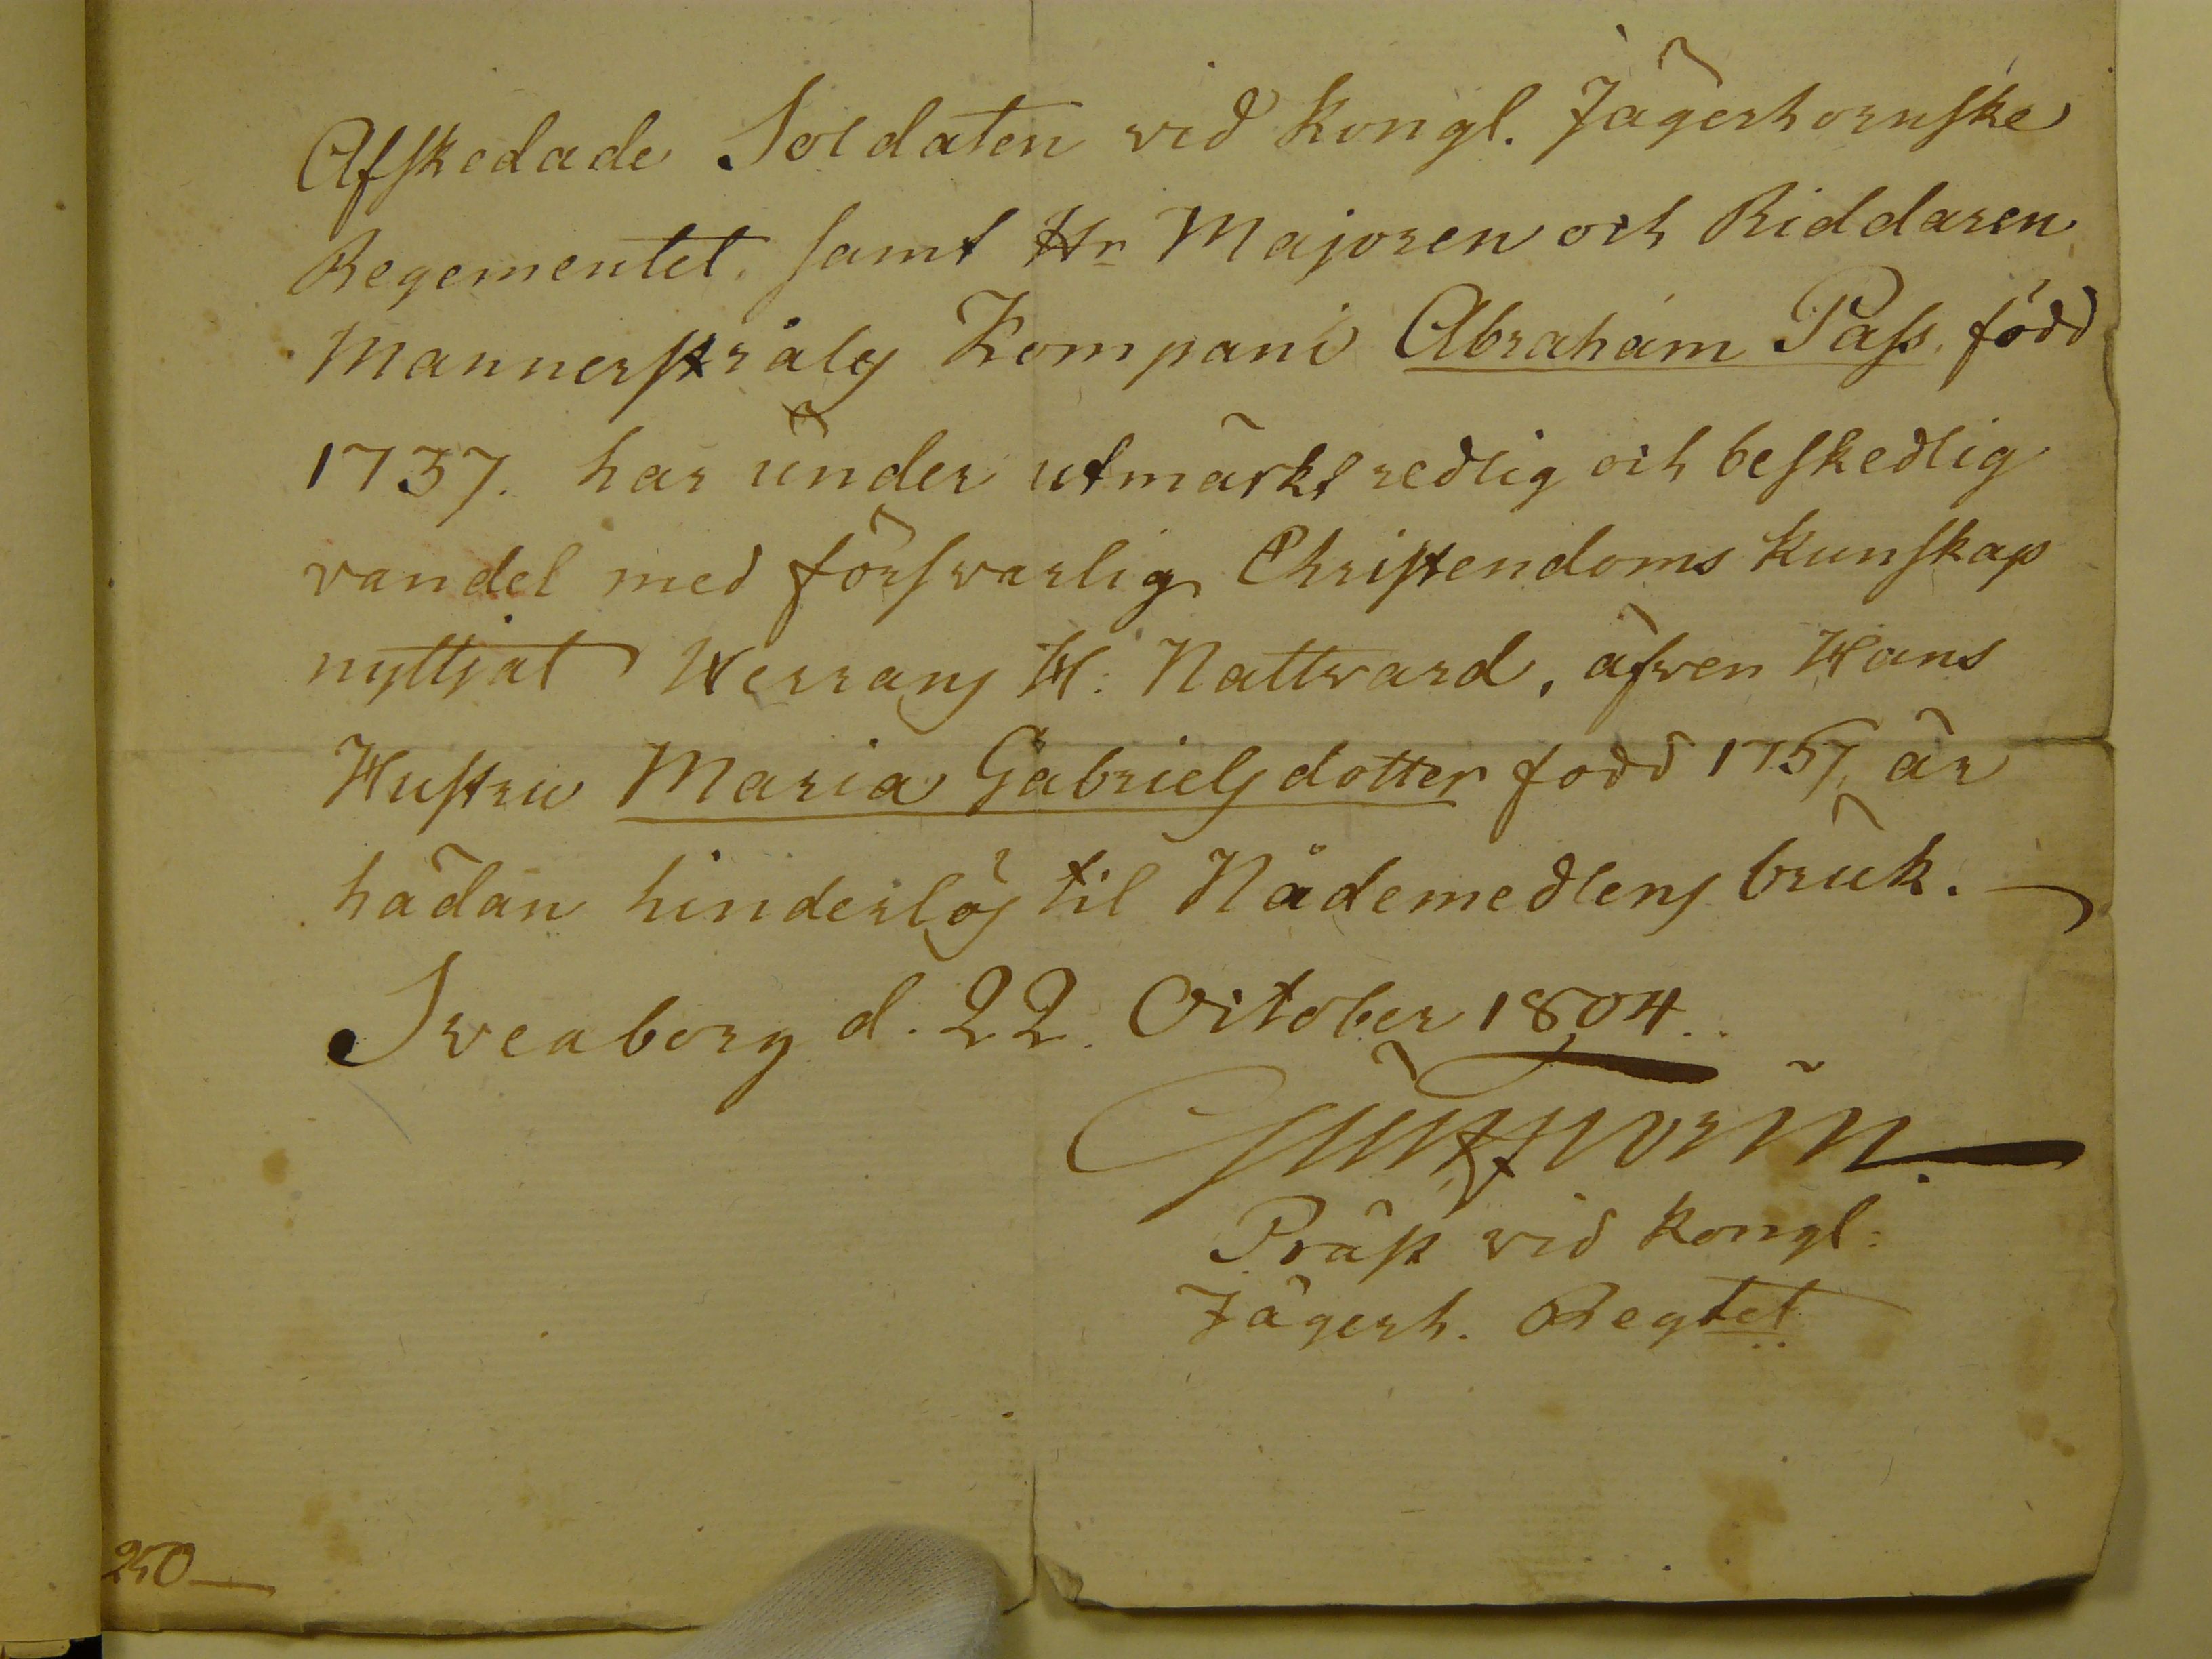 Afskedade Soldaten vid Kongl. Jägerhornske
Regementet, samt Hr Majoren och Riddaren
Mannerstråls Kompani Abraham Pass, född
1737. har under utmärkt redlig och beskedlig
vandel med försvarlig Christendoms kunskap
nyttjat Herrans H: Nattvard, äfven Hans
Hustru Maria Gabrielsdotter född 1757, är
hädan hinderlös til Nådemedlens bruk.
Sveaborg d. 22. October 1804.
Präst vid Kongl:
Jägerh. Regtet
250